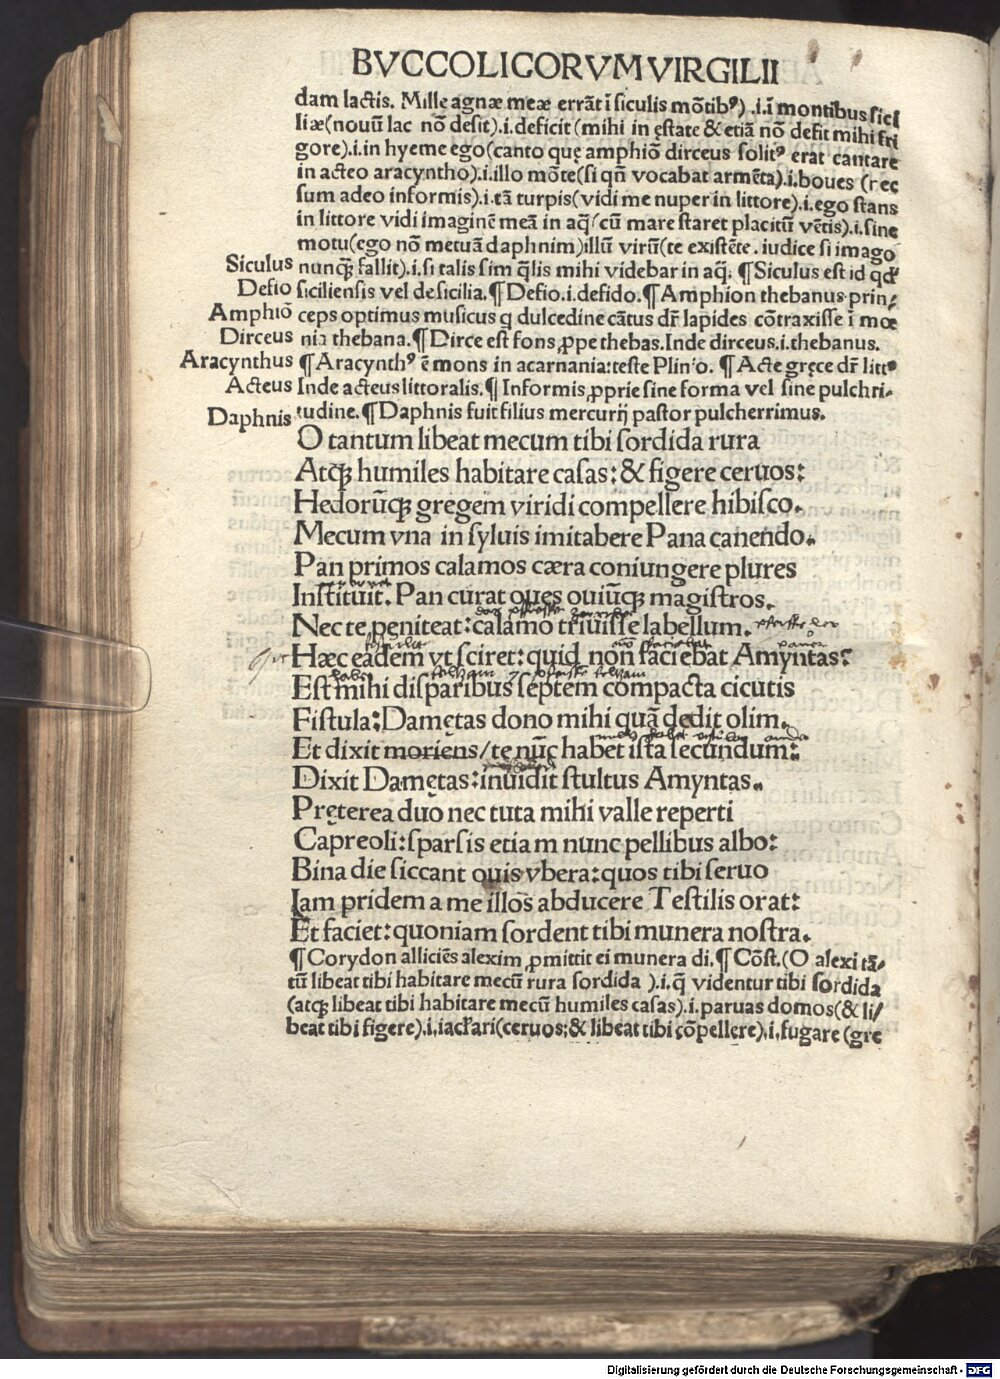 BVCCOLICORVM VIRGILII
dam lactis. Mille agnæ meæ errāt ī siculis mōtibꝰ) .i.ī montibus sici
liæ(nouū lac nō desit).i.deficit (mihi in ęstate & etiā nō defit mihi fri
gore).i.in hyeme ego(canto quę amphiō dirceus solitꝰ erat cantare
in acteo aracyntho).i.illo mōte(si qñ vocabat armēta).i.boues (nec
sum adeo informis).i.tā turpis(vidi me nuper in littore).i.ego stans
in littore vidi imaginē meā in aq̄(cū mare staret placitū vētis).i.sine
motu(ego nō metuā daphnim)illū virū(te existēte.iudice si imago
Siculus nunqȝ fallit).i.si talis sim q̄lis mihi videbar in aq̄. ¶Siculus est id qđ
Defio siciliensis vel de sicilia.¶Defio.i.defido.¶Amphion thebanus prin/
Amphiō ceps optimus musicus q dulcedine cātus dr̄ lapides cōtraxisse ī mœ
Dirceus nia thebana.¶Dirce est fons ꝓpe thebas.Inde dirceus.i.thebanus.
Aracynthus ¶Aracynthꝰ ē mons in acarnania:teste Plinio. ¶Acte gręce dr̄ littꝰ
Acteus Inde acteus littoralis.¶Informis ꝓprie sine forma vel sine pulchri-
Daphnis tudine.¶Daphnis fuit filius mercurij pastor pulcherrimus.
O tantum libeat mecum tibi sordida rura
Atqȝ humiles habitare casas:& figere ceruos:
Hedorūqȝ gregem viridi compellere hibisco.
Mecum vna in syluis imitabere Pana canendo.
Pan primos calamos cæra coniungere plures
Instituit. Pan curat oues ouiūqȝ magistros.
Nec te peniteat:calamo triuisse labellum.
Hæc eadem vt sciret:quid non faciebat Amyntas?
Est mihi disparibus septem compacta cicutis
Fistula:Damętas dono mihi quā dedit olim.
Et dixit moriens/te nūc habet ista secundum:
Dixit Damętas:inuidit stultus Amyntas.
Pręterea duo nec tuta mihi valle reperti
Capreoli:sparsis etiam nunc pellibus albo:
Bina die siccant ouis vbera:quos tibi seruo
Iam pridem a me illos abducere Testilis orat:
Et faciet:quoniam sordent tibi munera nostra.
¶Corydon alliciēs alexim ꝓmittit ei munera di.¶Cōst.(O alexi tā/
tū libeat tibi habitare mecū rura sordida ).i.q̄ videntur tibi sordida
(atqȝ libeat tibi habitare mecū humiles casas).i.paruas domos(& li/
beat tibi figere).i.iactari(ceruos:& libeat tibi cōpellere).i.fugare (gre
Digitalisierung gefördert durch die Deutsche Forschungsgemeinschaft - DFG